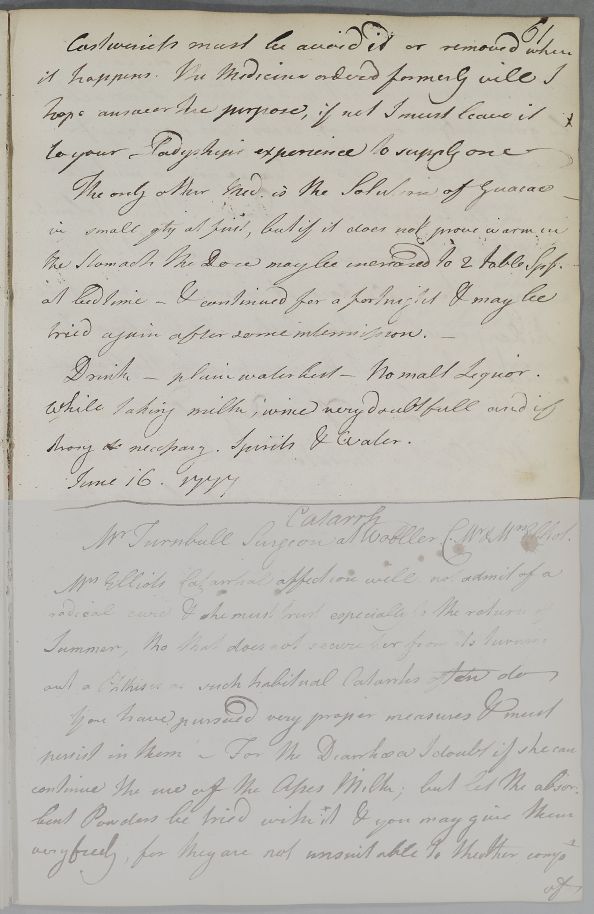 61
Costiveness must be avoided or removed when
it happens. The Medicine ordered formerly will I
hope answer the purpose, if not I must leave it
to your Ladyship's experience to supply one
The only other Med. is the Solution of Guaiac
in small qty at first, but if it does not prove warm in
the Stomach the Dose may be increased to 2 table Spf.
at bedtime – & continued for a fortnight & may be
tried again after some intermission. –
Drink – plain water best – No malt Liquor.
While taking milk, wine very doubtfull and if
strong necessary. Spirits & Water.
June 16. 1777
Catarrh
Mr Turnbull Surgeon at Wooller C. Mr & Mrs Elliot.
Mrs Elliots Catarrhal affection will not admit of a
radical cure & she must trust especially to the return of
Summer, tho that does not secure her from its turning
out a Phthisis as such habitual Catarrhs often do
You have pursued very proper measures & must
persist in them – For the Diarrhoea I doubt if she can
continue the use of the Asses Milk; but let the absor-
bent Powders be tried with it & you may give them
very freely, for they are not unsuitable to the other comp
of